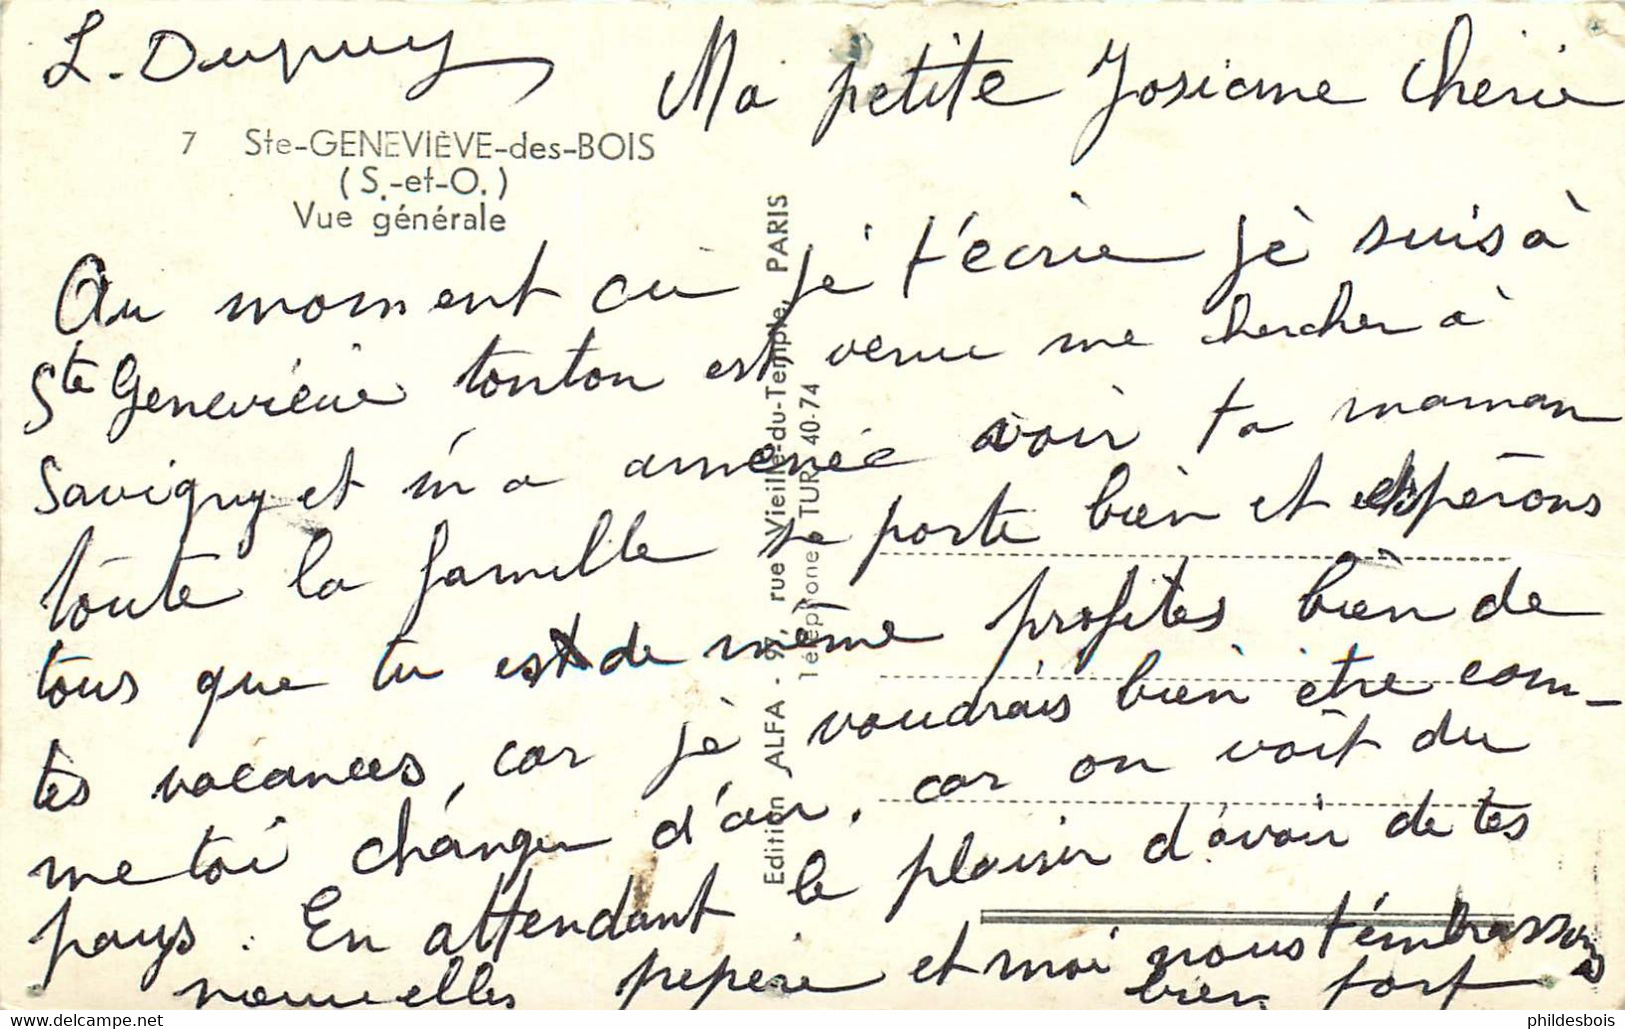 L. Dupuy
Ma petite Josiane chérie
7 Ste-GENEVIÈVE-des-BOIS
(S.-et-O.)
Vue générale
Au moment où je t'écrie je suis à
Ste Geneviève tonton est venu me chercher à
Savigny et m'a amenée voir ta maman
toute la famille se porte bien et espérons
tous que tu es de même profites bien de
tes vacances, car je voudrais bien être com-
me toi changer d'air, car on voit du
pays. En attendant le plaisir d'avoir de tes
nouvelles pepère et moi nous t'embrassons
bien fort
Edition ALFA - 97, rue Vieille-du-Temple, PARIS
Téléphone TUR 40-74
phildesbois